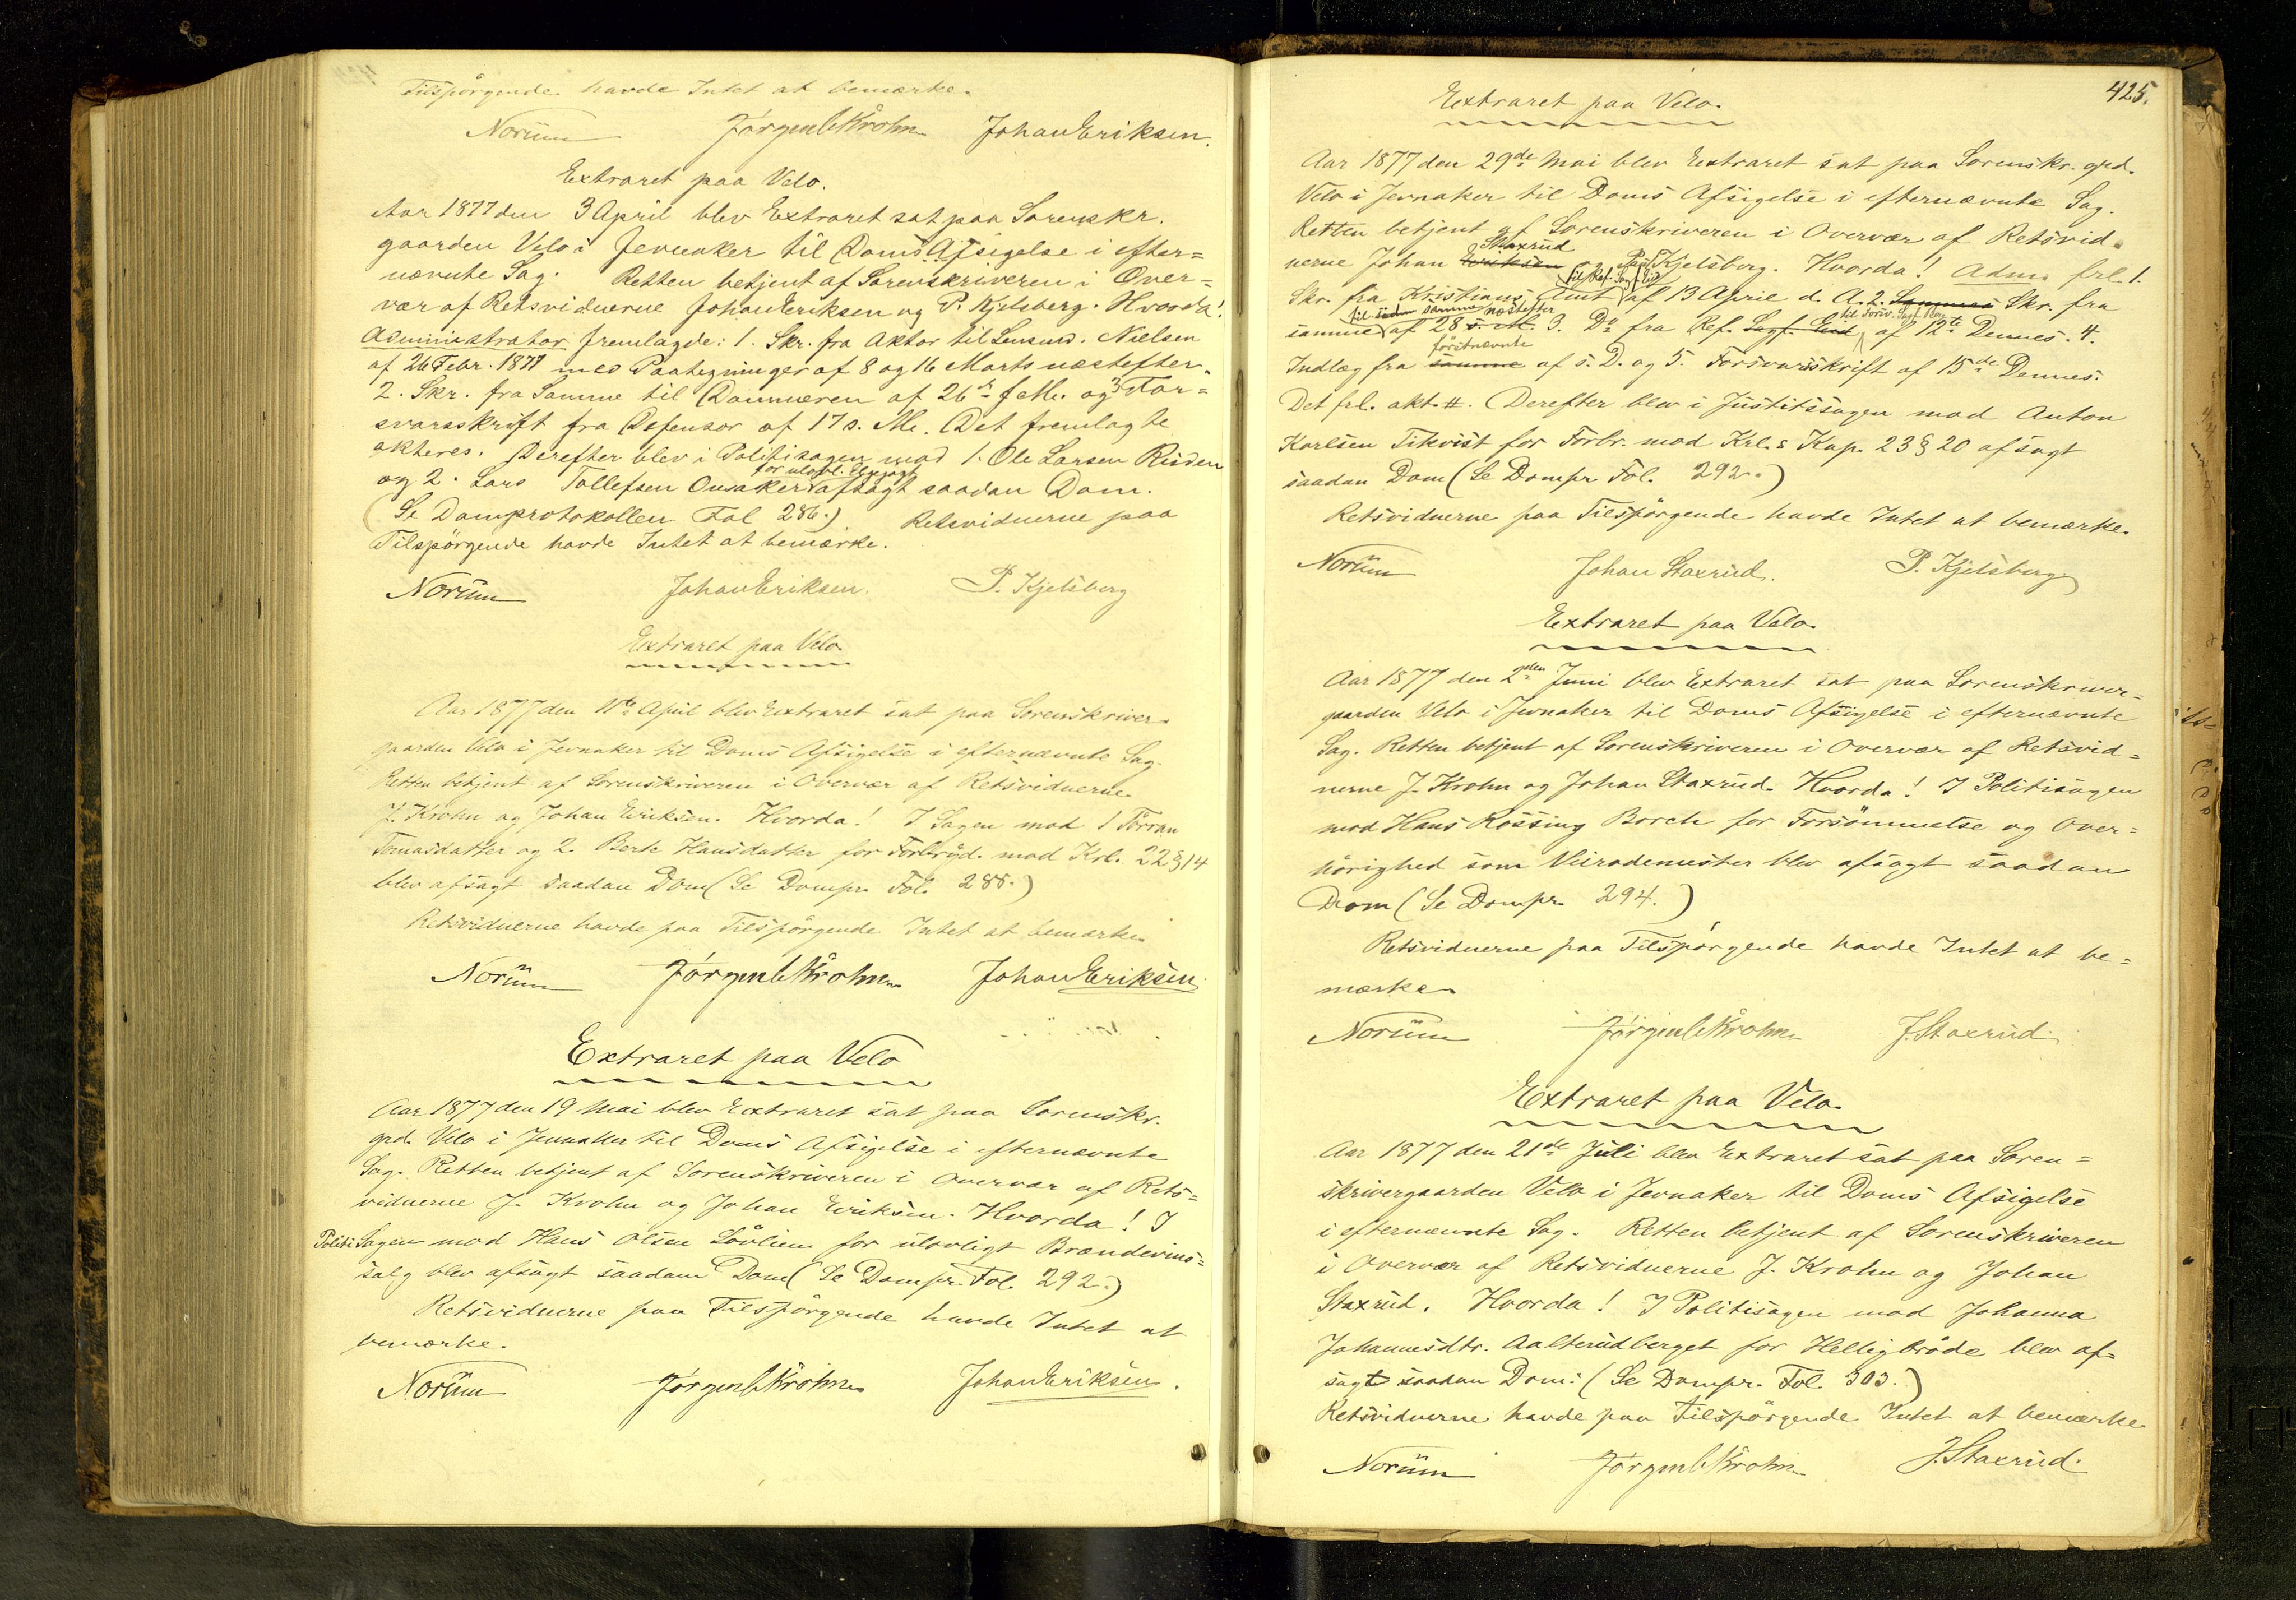 Tilspörgende havde Intet at bemærke.
Norüm Jörgen C Krohn Johan Eriksen.
Extraret paa Velo.
Aar 1877 den 3 April blev Extraret sat paa Sorenskr.
gaarden Velo i Jevnaker til Doms Afsigelse i efter=
nævnte Sag. Retten betjent af Sorenskriveren i Over=
vær af Retsvidnerne Johan Eriksen og P. Kjelsberg. Hvorda!
Administrator fremlagde: 1. Skr. fra Aktor til Lensmd. Nielsen
af 26 Febr. 1877 med Paategninger af 8 og 16 Marts næstefter.
2. Skr. fra Samme til Dommeren af 26de f. M. og 3 For=
svarsskrift fra Defensor af 17 s. M. Det fremlagte
akteres. Derefter blev i Politisagen mod 1. Ole Larsen Risden
for ulovl. Elgjagt
og 2. Lars Tollefsen Onsaker afsagt saadan Dom.
(Se Domprotokollen Fol 286.) Retsvidnerne paa
Tilspörgende havde Intet at bemærke.
Norüm Johan Eriksen. P. Kjelsberg
Extraret paa Velo.
Aar 1877 den 11te April blev Extraret sat paa Sorenskriver
gaarden Velo i Jevnaker til Doms Afsigelse i efternævnte Sag.
Retten betjent af Sorenskriveren i Overvær af Retsvidnerne
J. Krohn og Johan Eriksen. Hvorda! I Sagen mod 1 Törran
Tomasdatter og 2. Berte Hansdatter for Forbryd. mod Krl. 22 § 14
blev afsagt saadan Dom (Se Dompr. Fol. 288.)
Retsvidnerne havde paa Tilspörgende Intet at bemærke.
Norüm Jörgen C Krohn Johan Eriksen.
Extraret paa Velo
Aar 1877 den 19 Mai blev Extraret sat paa Sorenskr.
grd. Velo i Jevnaker til Doms Afsigelse i efternævnte
Sag. Retten betjent af Sorenskriveren i Overvær af Rets=
vidnerne J. Krohn og Johan Eriksen. Hvorda! I
Politi Sagen mod Hans Olsen Lövlien for ulovligt Brændevins=
salg blev afsagt saadan Dom (Se Dompr. Fol. 292.)
Retsvidnerne paa Tilspörgende havde Intet at
bemærke.
Norüm Jörgen C Krohn Johan Eriksen.
425.
Extraret paa Velo.
Aar 1877 den 29de Mai blev Extraret sat paa Sorenskr. grd.
Velo i Jevnaker til Doms Afsigelse i efternævnte Sag.
Retten betjent af Sorenskriveren i Overvær af Retsvid=
Staxrud
nerne Johan Eriksen og Paul Kjelsberg. Hvorda! Adm. frl. 1.
til Ref. Sagf. Lid
Skr. fra Kristians Amt af 13 April d. A. 2. Sammes Skr. fra
til samme næstefter til Forsv. Sagf.
samme af 28 s. M. 3. Do fra Ref. Sagf. Lid af 12te Dennes. 4.
förstnævnte
Indlæg fra samme af s. D. og 5. Forsvarsskrift af 15de Dennes.
Det frl. akt. #. Derefter blev i Justitssagen mod Anton
Karlsen Tikvist for Forbr. mod Krl.s Kap. 23 § 20 afsagt
saadan Dom (Se Dompr Fol. 292.)
Retsvidnerne paa Tilspörgende havde Intet at bemærke.
Norüm Johan Staxrud. P. Kjelsberg
Extraret paa Velo.
Aar 1877 den 2den Juni blev Extraret sat paa Sorenskriver=
gaarden Velo i Jevnaker til Doms Afsigelse i efternævnte
Sag. Retten betjent af Sorenskriveren i Overvær af Retsvid=
nerne J. Krohn og Johan Staxrud. Hvorda! I Politisagen
mod Hans Rossing Borch for Forsömmelse og Over=
hörighed som Veirodemester blev afsagt saadan
Dom (Se Dompr. 294.)
Retsvidnerne paa Tilspörgende havde Intet at be=
mærke.
Norüm Jörgen C Krohn J. Staxrud.
Extraret paa Velo.
Aar 1877 den 21de Juli blev Extraret sat paa Soren=
skrivergaarden Velo i Jevnaker til Doms Afsigelse
i efternævnte Sag. Retten betjent af Sorenskriveren
i Overvær af Retsvidnerne J. Krohn og Johan
Staxrud. Hvorda! I Politisagen mod Johanna
Johannesdtr. Aalterudberget for Helligbröde blev af=
sagt saadan Dom: (Se Dompr. Fol. 303.)
Retsvidnerne havde paa Tilspörgende Intet at bemærke.
Norüm Jörgen C Krohn J. Staxrud.